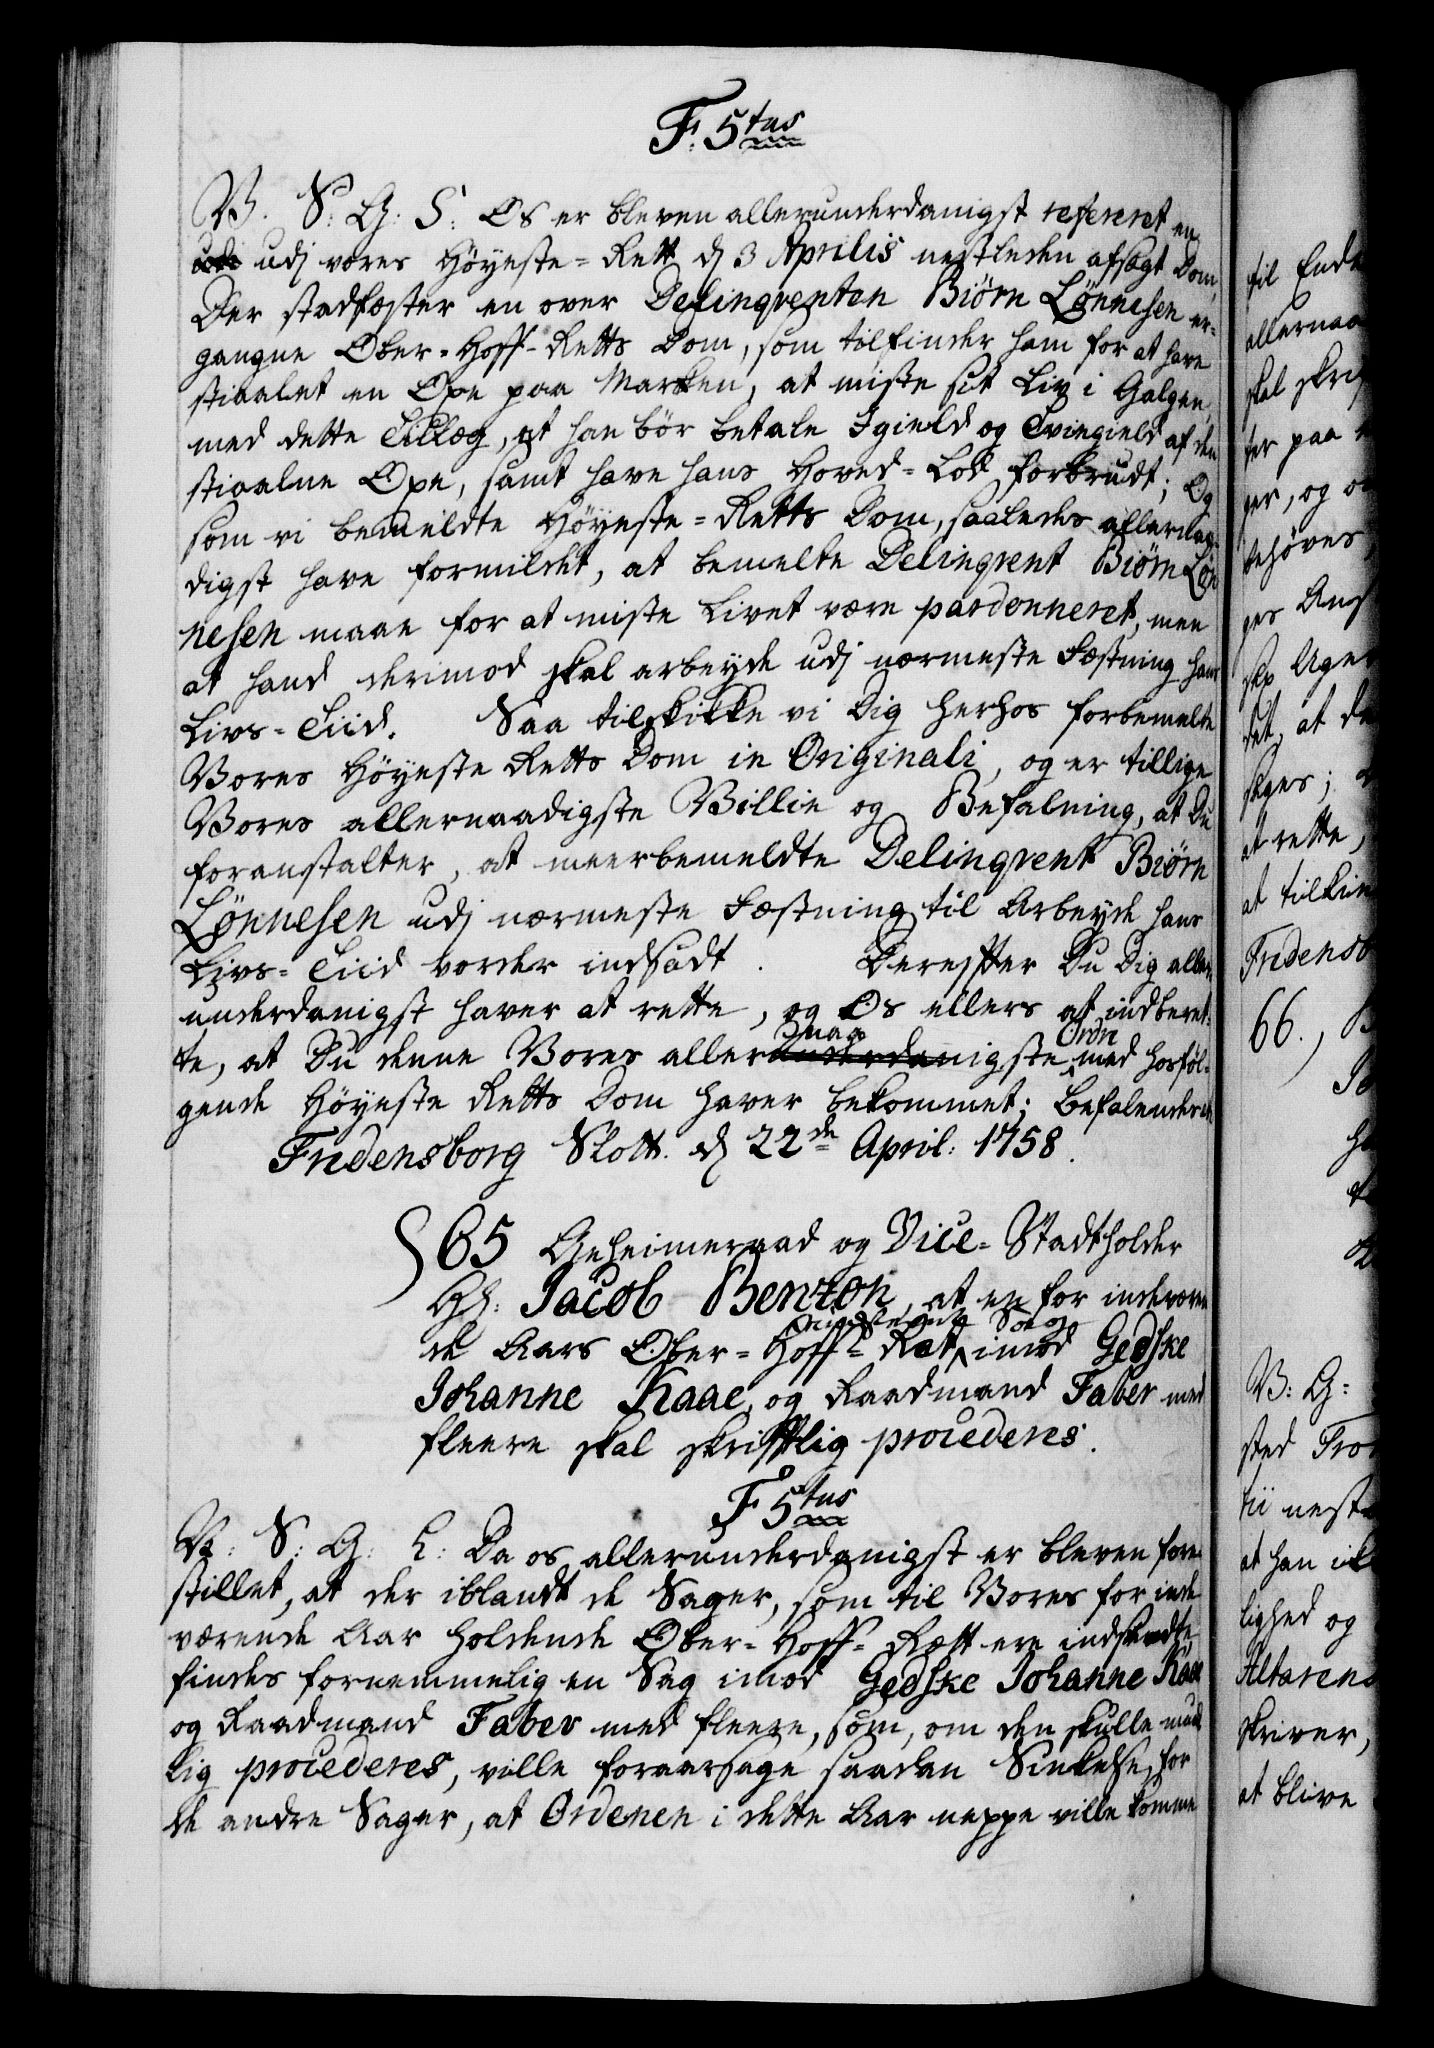 F. 5tus
V. S: G: S: Os er bleven allerunderdanigst refereret en
udj vores Höyeste-Rett d 3 Aprilis nestleden afsagt Dom,
Der stadfæster en over Delinqventen Biørn Lønnesen er-
gangne Ober-Hoff-Retts Dom, som tilfinder ham for at have
stiaalet en Oxe paa Marken, at miste sit Liv i Galgen,
med dette Tillæg, at han bör betale Igield og Tvingield af den
stiaalne Oxe, samt have hans Hoved-Lod forbrudt; Og
som vi bemeldte Höyeste-Retts Dom, saaledes allernaa-
digst have formildet, at bemelte Delinqvent Biørn Løn-
nesen maae for at miste Livet være pardonneret, men
at hand derimod skal arbeyde udj nærmeste Fæstning hans
Livs-Tiid. Saa tilskikke vi Dig herhos forbemelte
Vores Höyeste Retts Dom in Originali, og er tillige
Vores allernaadigste Villie og Befalning, at Du
foranstalter, at meerbemeldte Delinqvent Biørn
Lønnesen udj nærmeste Fæstning til Arbeyde hans
Livs-Tiid vorder indsadt. Derefter Du Dig aller-
underdanigst haver at rette, og Os ellers at indberet-
naa Ordre
te, at Du denne Vores allerunderdanigste med hosföl-
gende Höyeste Retts Dom haver bekommet; Befalendes
Fridensborg Slott. d 22de April: 1758.
65 Geheimeraad og Vice-Stadtholder
Hr: Jacob Benzon, at en for indeværen-
indstevnt Sag
de Aars Ober-Hoff-Ret imod Gedske
Johanne Kaae, og Raadmand Faber med
fleere skal skrifftlig procederes.
F 5tus
V: S: G: L: Da os allerunderdanigst er bleven fore-
stillet, at der iblandt de Sager, som til Vores for inde-
værende Aar holdende Ober-Hoff-Rætt ere indstevnte,
findes fornemmelig en Sag imod Gedske Johanne Kaae
og Raadmand Faber med fleere, som, om den skulle mund-
lig procederes, ville foraarsage saadan Sinkelse for
de andre Sager, at Ordenen i dette Aar neppe ville komme
til Ende
allernaa
skal skrif
ter paa
ger, og
behøves
ges
Uger
det, at de
sages;
at rette,
at tilkien
Fridensb
66.,
V: G:
sted Tron
nest
at han ik
lighed og
Altarens
skriver,
at blive